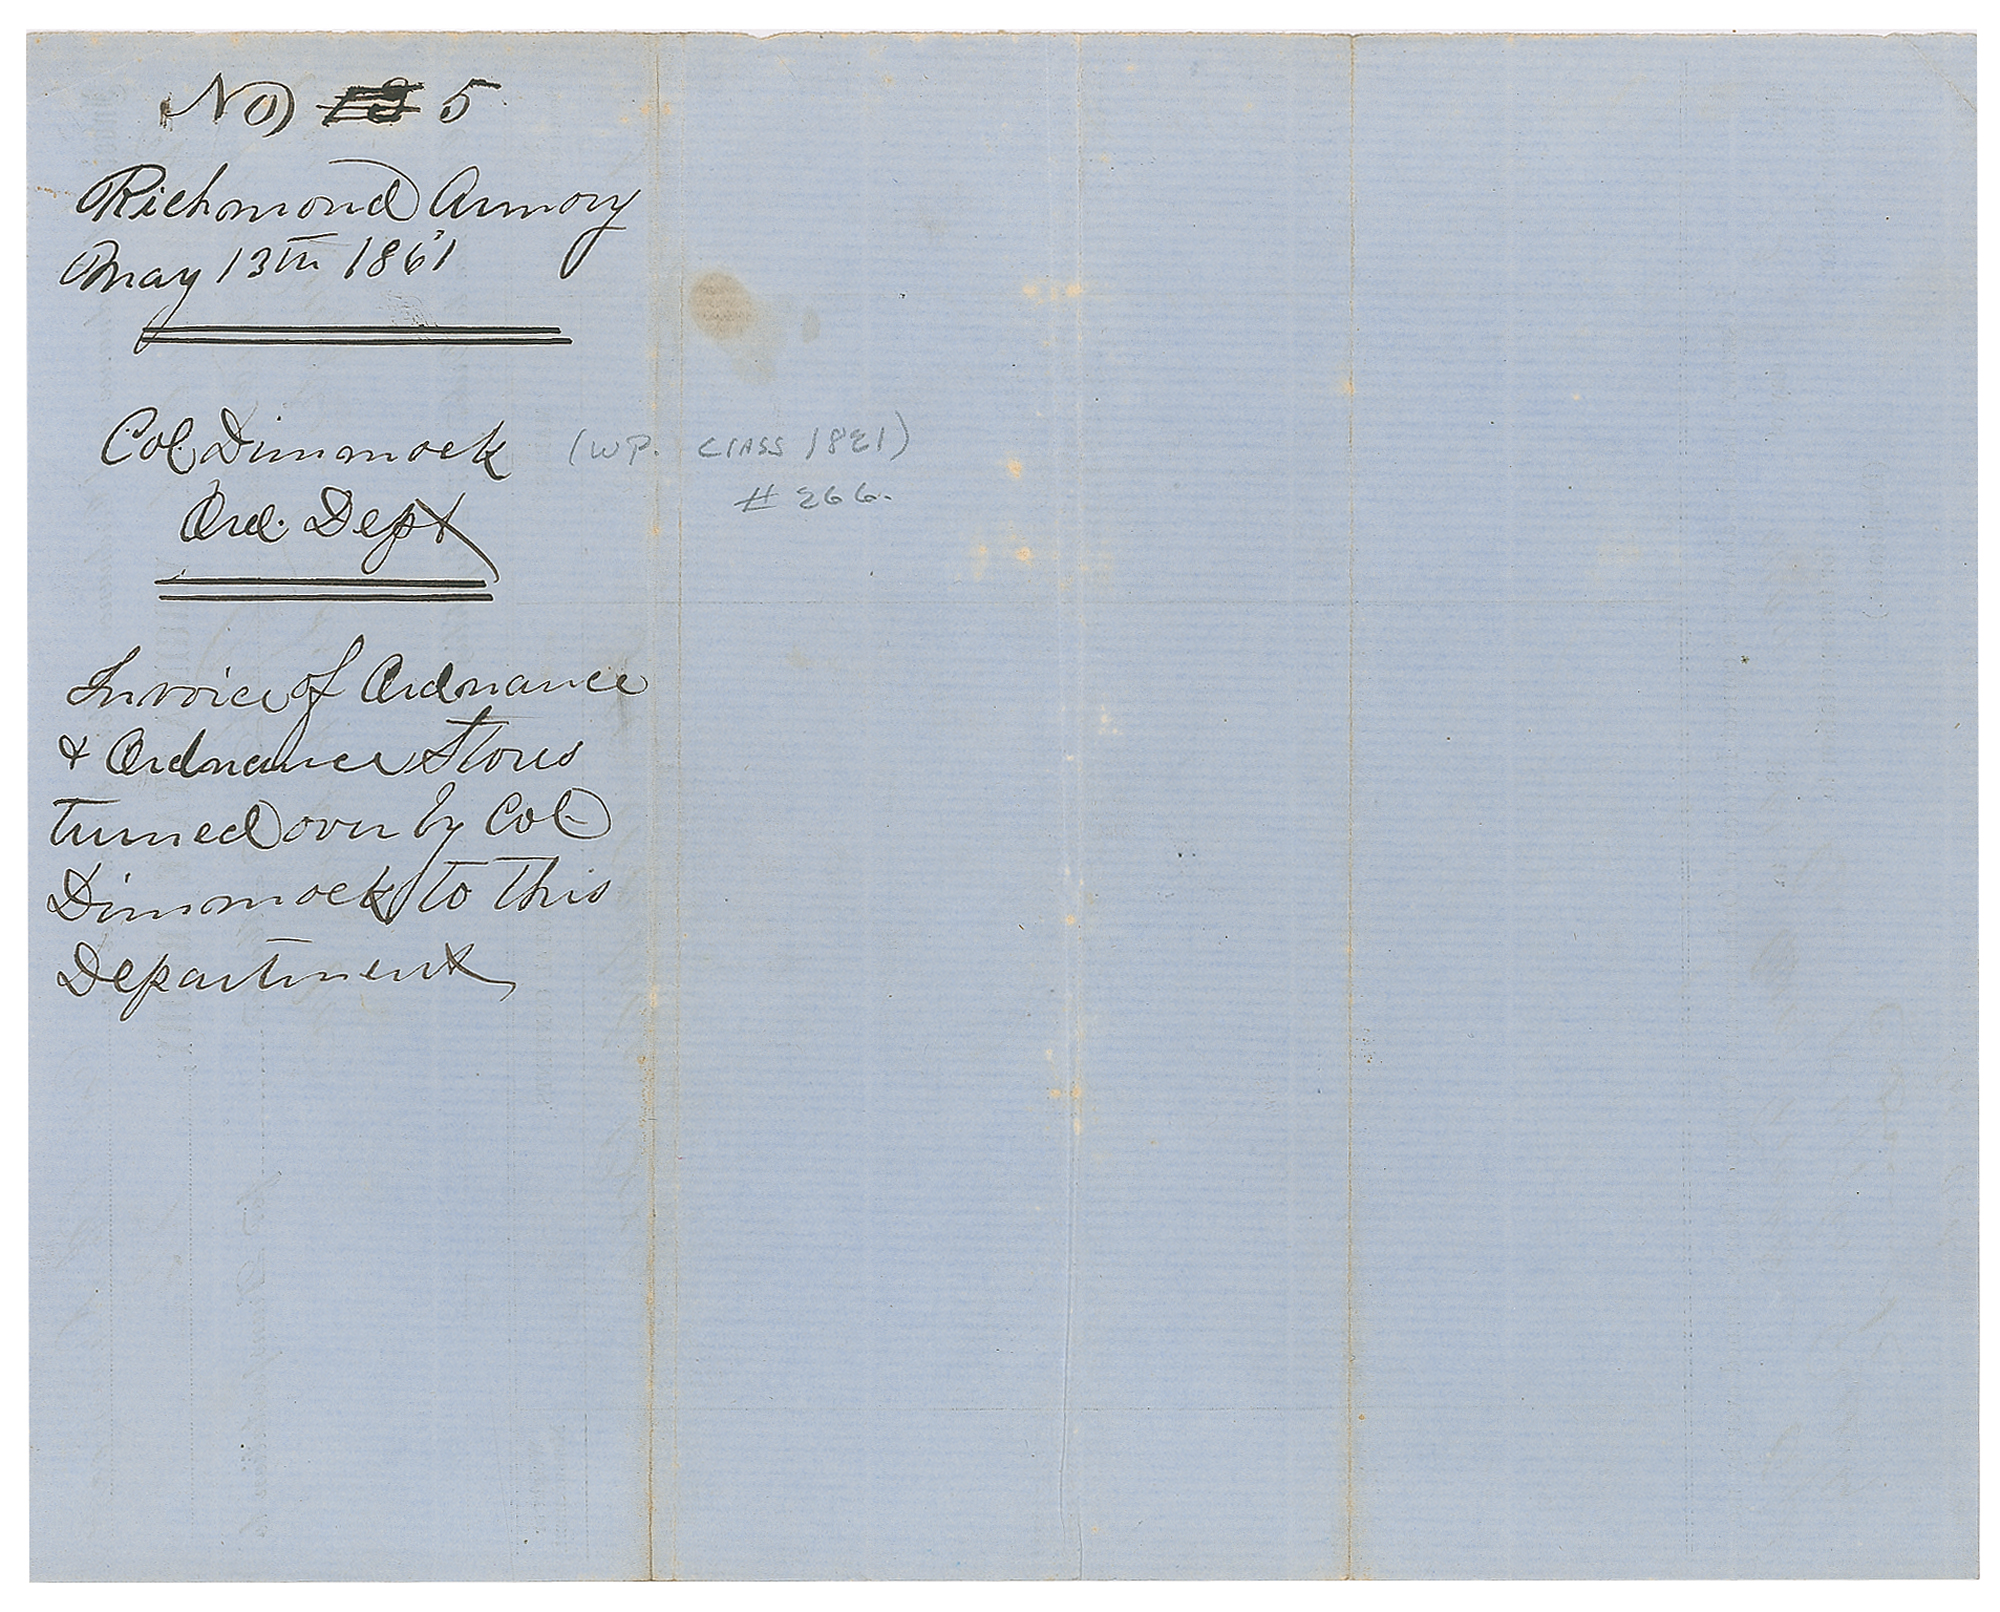 No 5
Richmond Armory
May 13th 1861
Col. Dimmock
(W.P. CLASS 1821)
# 266.
Ord. Dept
Invoice of Ordnance
& Ordnance Stores
turned over by Col
Dimmock to this
Department